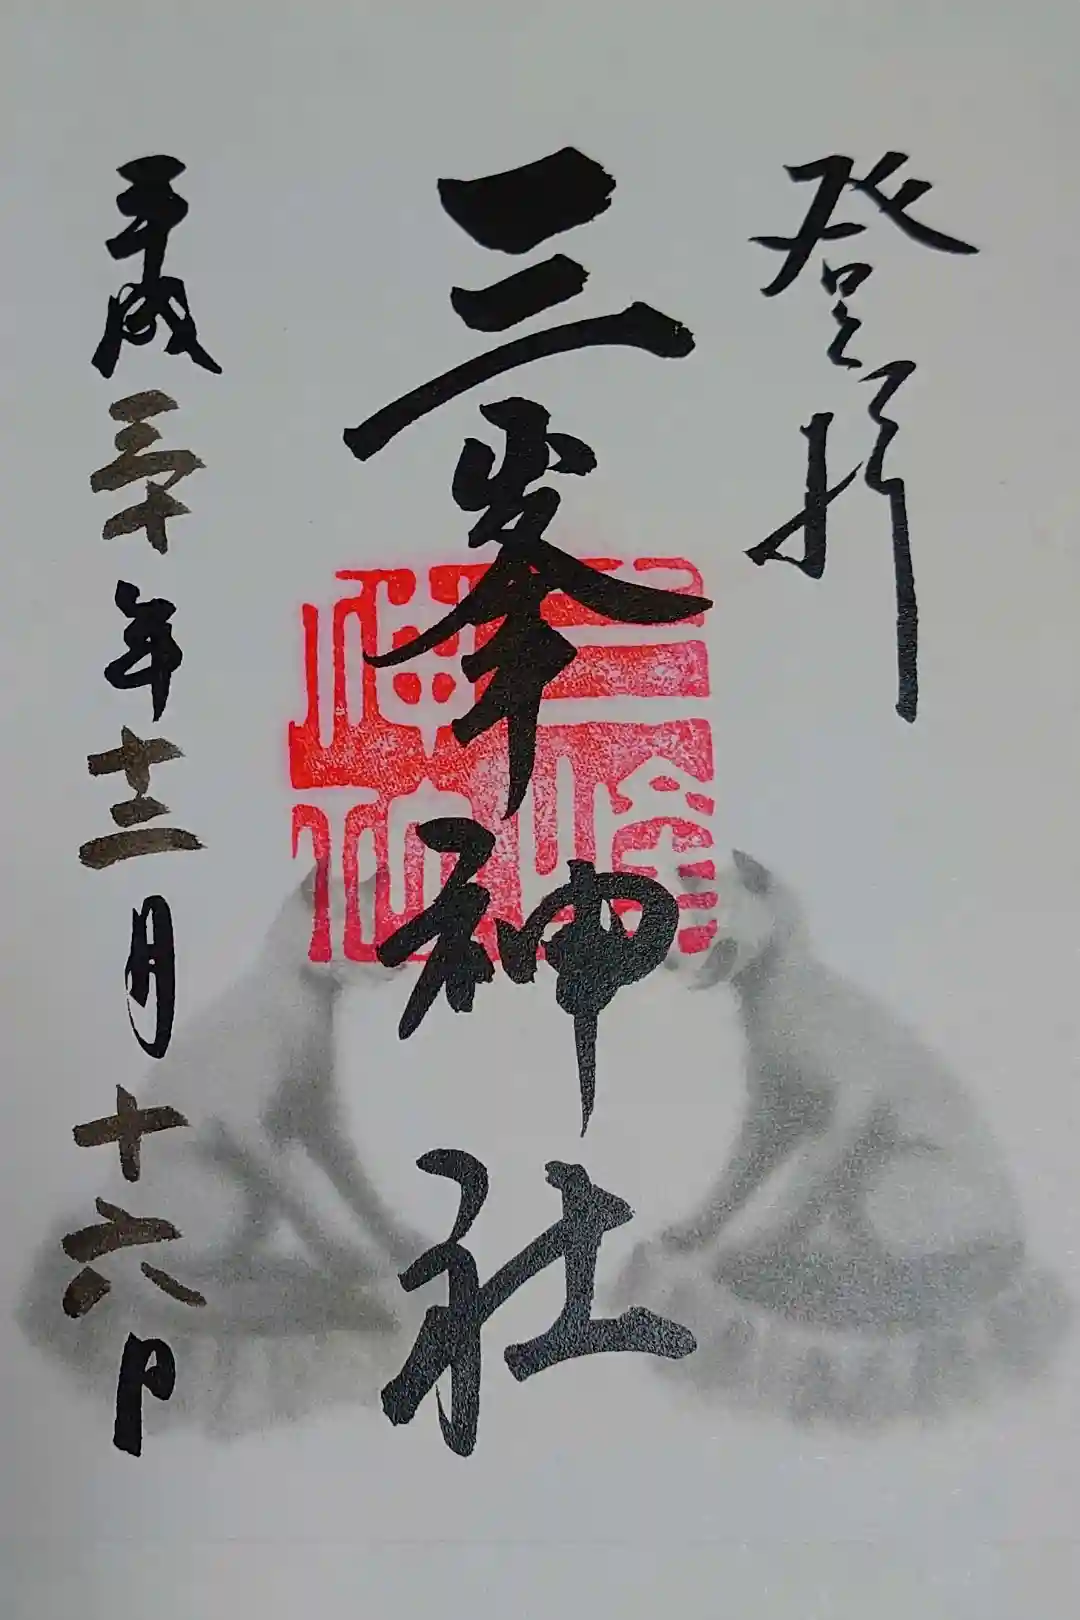 登拝
三峯神社
平成三十年十二月十六日
三峰神社